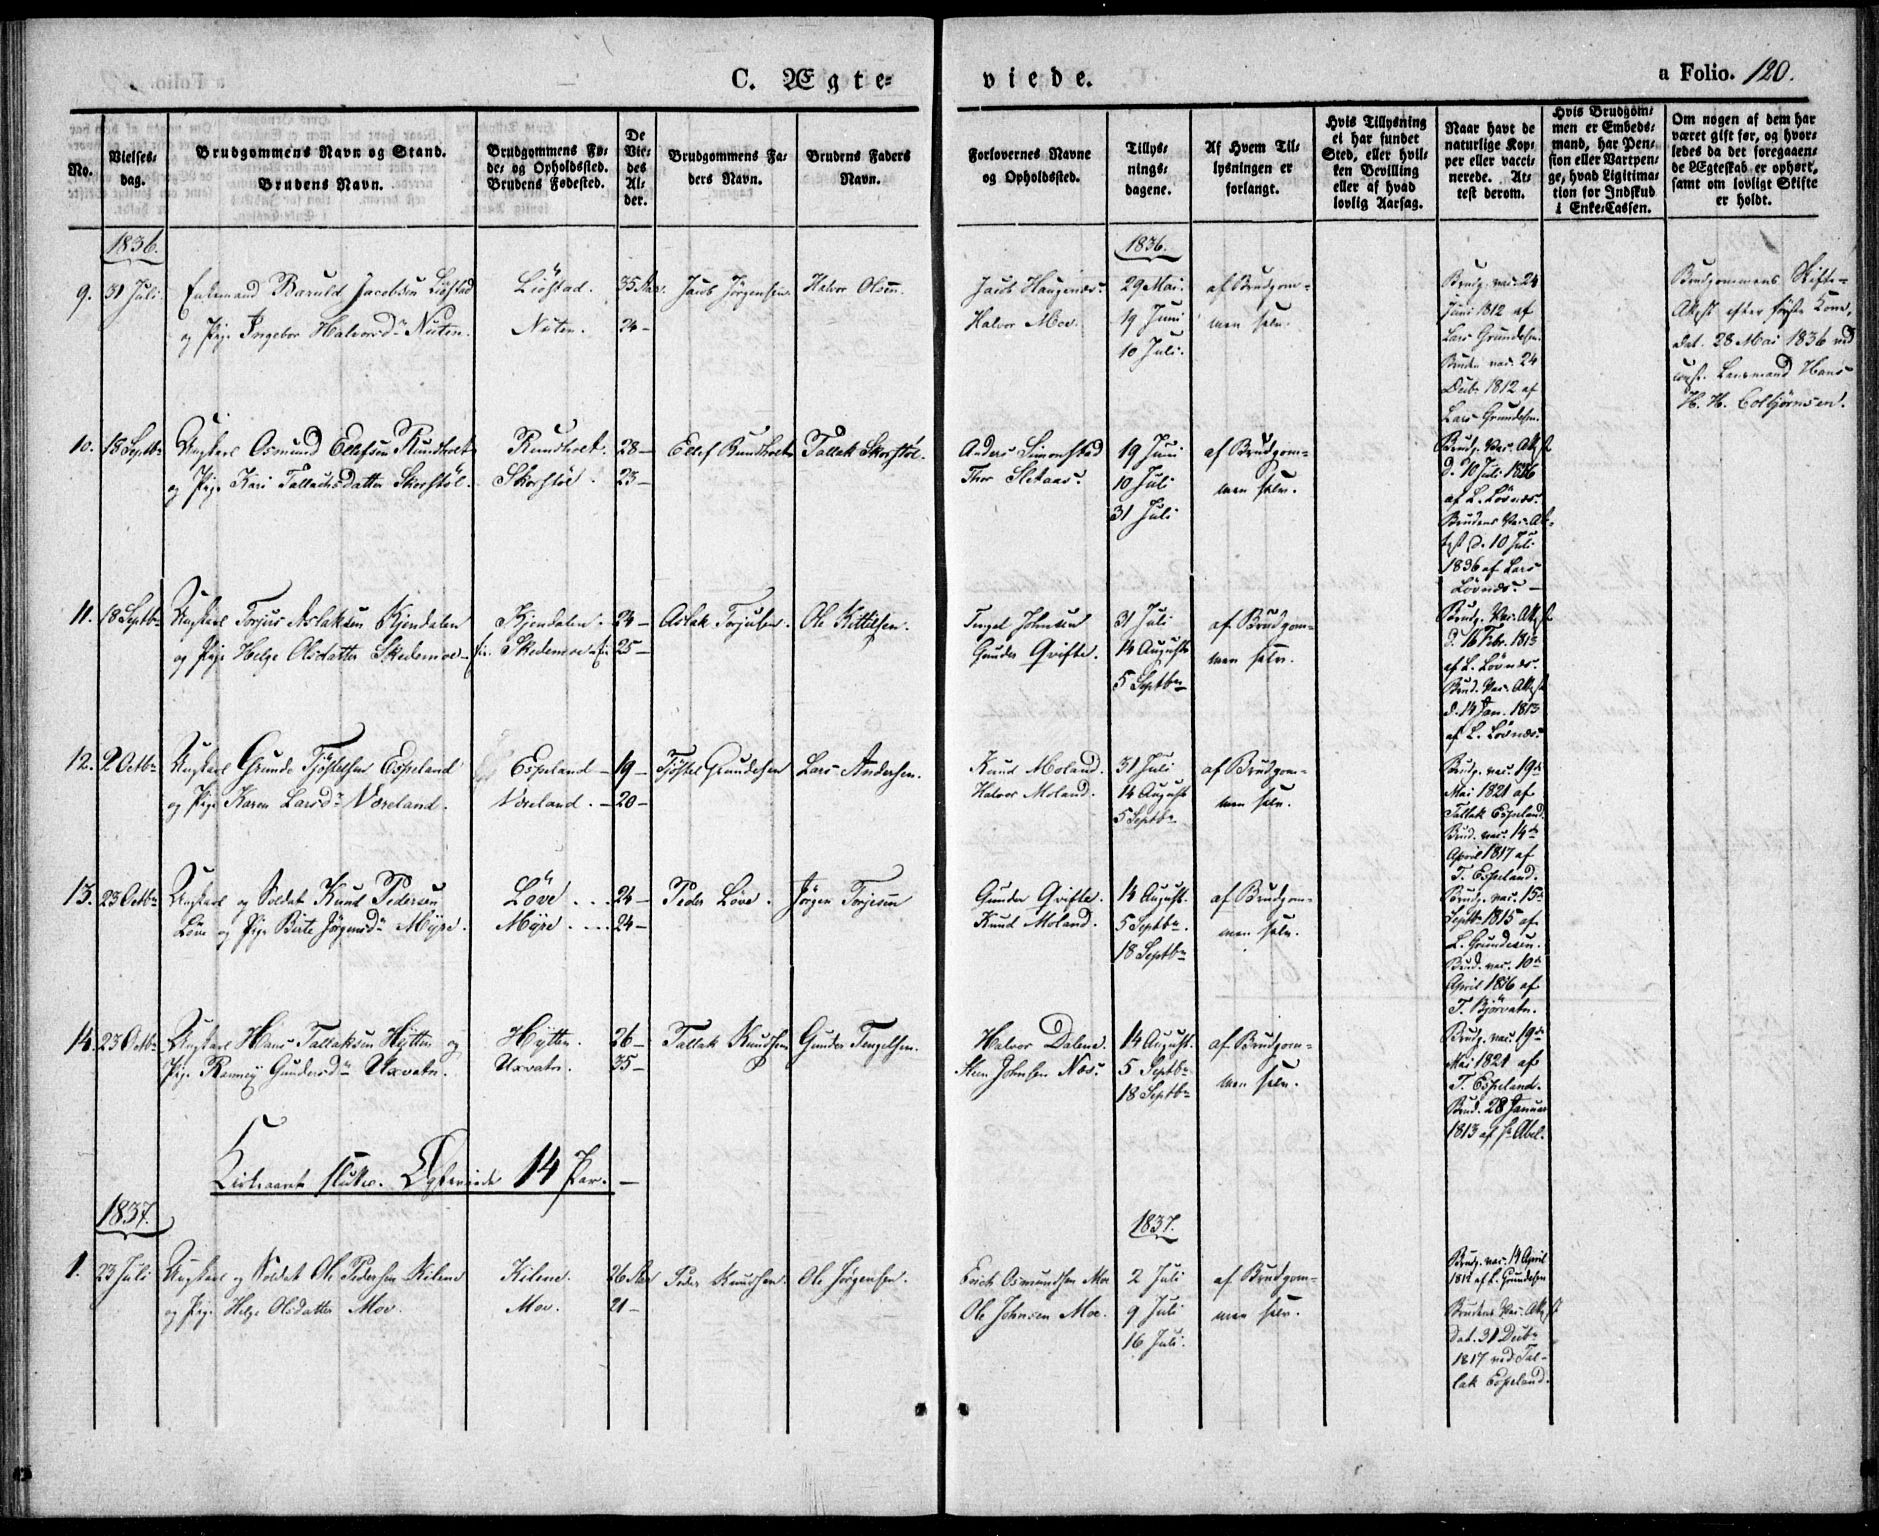 C. Ægteviede.
a Folio. 120.
No.
Vielsesdag.
Brudgommens Navn og Stand.
Brudens Navn.
Brudgommens Føde- og Opholdssted.
Brudens Fødested.
De Viedes Alder.
Brudgommens Faders Navn.
Brudens Faders Navn.
Forlovernes Navne og Opholdssted.
Tillysningsdagene.
Af Hvem Tillysningen er forlangt.
Hvis Tillysning ei har fundet Sted, eller hvilken Bevilling eller af hvad lovlig Aarsag.
Naar havt de naturlige Kopper eller vaccinerede. Attest derom.
Hvis Brudgommen er Embedsmand, har Pension eller Vartpenge, hvad Ligitimation for Indskud i Enke-Cassen.
Om nogen af dem har været gift før, og hvorledes da det foregaaende Ægteskab er ophørt, samt om lovligt Skifte er holdt.
1836.
1836.
9. 31 Juli. Enkemand Baruld Jacobsen Liøstad Liøstad. 35 Aar. Jacob Jørgensen. Halvor Olsen. Jacob Haugenæs. 29 Mai. af Brudgom-
og Pige Ingebor Halvorsdr Nuten. Nuten. 24- Halvor Moe. 19 Juni men selv.
10 Juli.
Brudg. vac. 24
Juni 1812 af
Lars Grundesen.
Bruden vac. 24
Decbr 1812 af
Lars Grundesen.
Brudgommens Skifte-
Attest efter første Kone,
dat. 28 Mai 1836 ved
const. Lensmand Hans
H. H. Colbjørnsen.
10. 18 Septbr Ungkarl Osmund Ellefsen Rundholt Rundholt. 28- Ellef Rundholt Tallak Skorstøl. Anders Simonstad 19 Juni af Brudgom-
og Pige Kari Tallaksdatter Skorstøl. Skorstøl. 23- Thor Sletaas. 10 Juli men selv.
31 Juli
Brudg. Vac. Attest
d. 10 Juli 1836
af L. Løvnæs.
Brudens Vac. At-
test d. 10 Juli
1836 af Lars
Løvnæs. -
11. 18 Septbr Ungkarl Torjus Aslaksen Kjendalen Kjendalen. 24- Aslak Torjusen. Ole Kittilsen. Tengel Johnsen 31 Juli af Brudgom-
og Pige Helge Olsdatter Skedemoe Skedemoe 25- Gunder Qvifte. 14 August men selv.
5 Septbr
Brudg. Vac. Attest
d. 16 Febr. 1813
af L. Løvnæs.
Brud. Vac. Attest
d. 14 Jan. 1813
af L. Løvnæs.
12. 2 Octbr Ungkarl Grunde Tjøstelsen Espeland Espeland- 19- Tjøstel Grundesen Lars Andersen. Knud Moland. 31 Juli af Brudgom-
og Pige Karen Larsdr Næreland. Næreland. - 20- Halvor Moland. 14 August men selv.
5 Septbr.
Brudg. vac. 19de
Mai 1821 af
Tallak Espeland.
Brud. vac. 14de
April 1817 af
T. Espeland.
13. 23 Octbr Ungkarl og Soldat Knud Pedersen Løve . . . 24- Peder Løve. Jørgen Torjesen Gunder Qvifte. 14 August. af Brudgom-
Løve og Pige Birte Jørgensdr Myre. Myre. . . . 24- Knud Moland. 5 Septbr. men selv.
18 Septbr
Brudg. vac. 15de
Septbr 1815 af
L. Grundesen.
Brud. vac. 10de
April 1816 af
T. Bjørvatn.
14. 23 Octbr Ungkarl Hans Tallaksen Hytten og Hytten. 26- Tallak Knudsen Gunder Tengelsen. Halvor Dalene. 14 August. af Brudgom-
Pige Ranney Gundersdr Uxvatn. Uxvatn. 35- Steen Johnsen Næs. 5 Septbr men selv.
18 Septbr
Brudg. vac. 19de
Mai 1821 af
T. Espeland.
Brud. 28 Januar
1813 af Hr Abel.
Kirkeaaret sluttes. Ægteviede 14 Par. -
1837.
1837.
1. 23 Juli Ungkarl og Soldat Ole Pedersen Kilene Kilene. 26 Aar Peder Knudsen. Ole Jørgensen. Erich Osmundsen Moe 2 Juli af Brudgom-
og Pige Helge Olsdatter Moe. Moe. 21- Ole Johnsen Moe. 9 Juli men selv.
16 Juli.
Brudg. vac. 14 April
1812 af L. Grundesen
Brudens Vac. Attest
dat. 31 Decbr
1817 ved Tal-
lak Espeland.